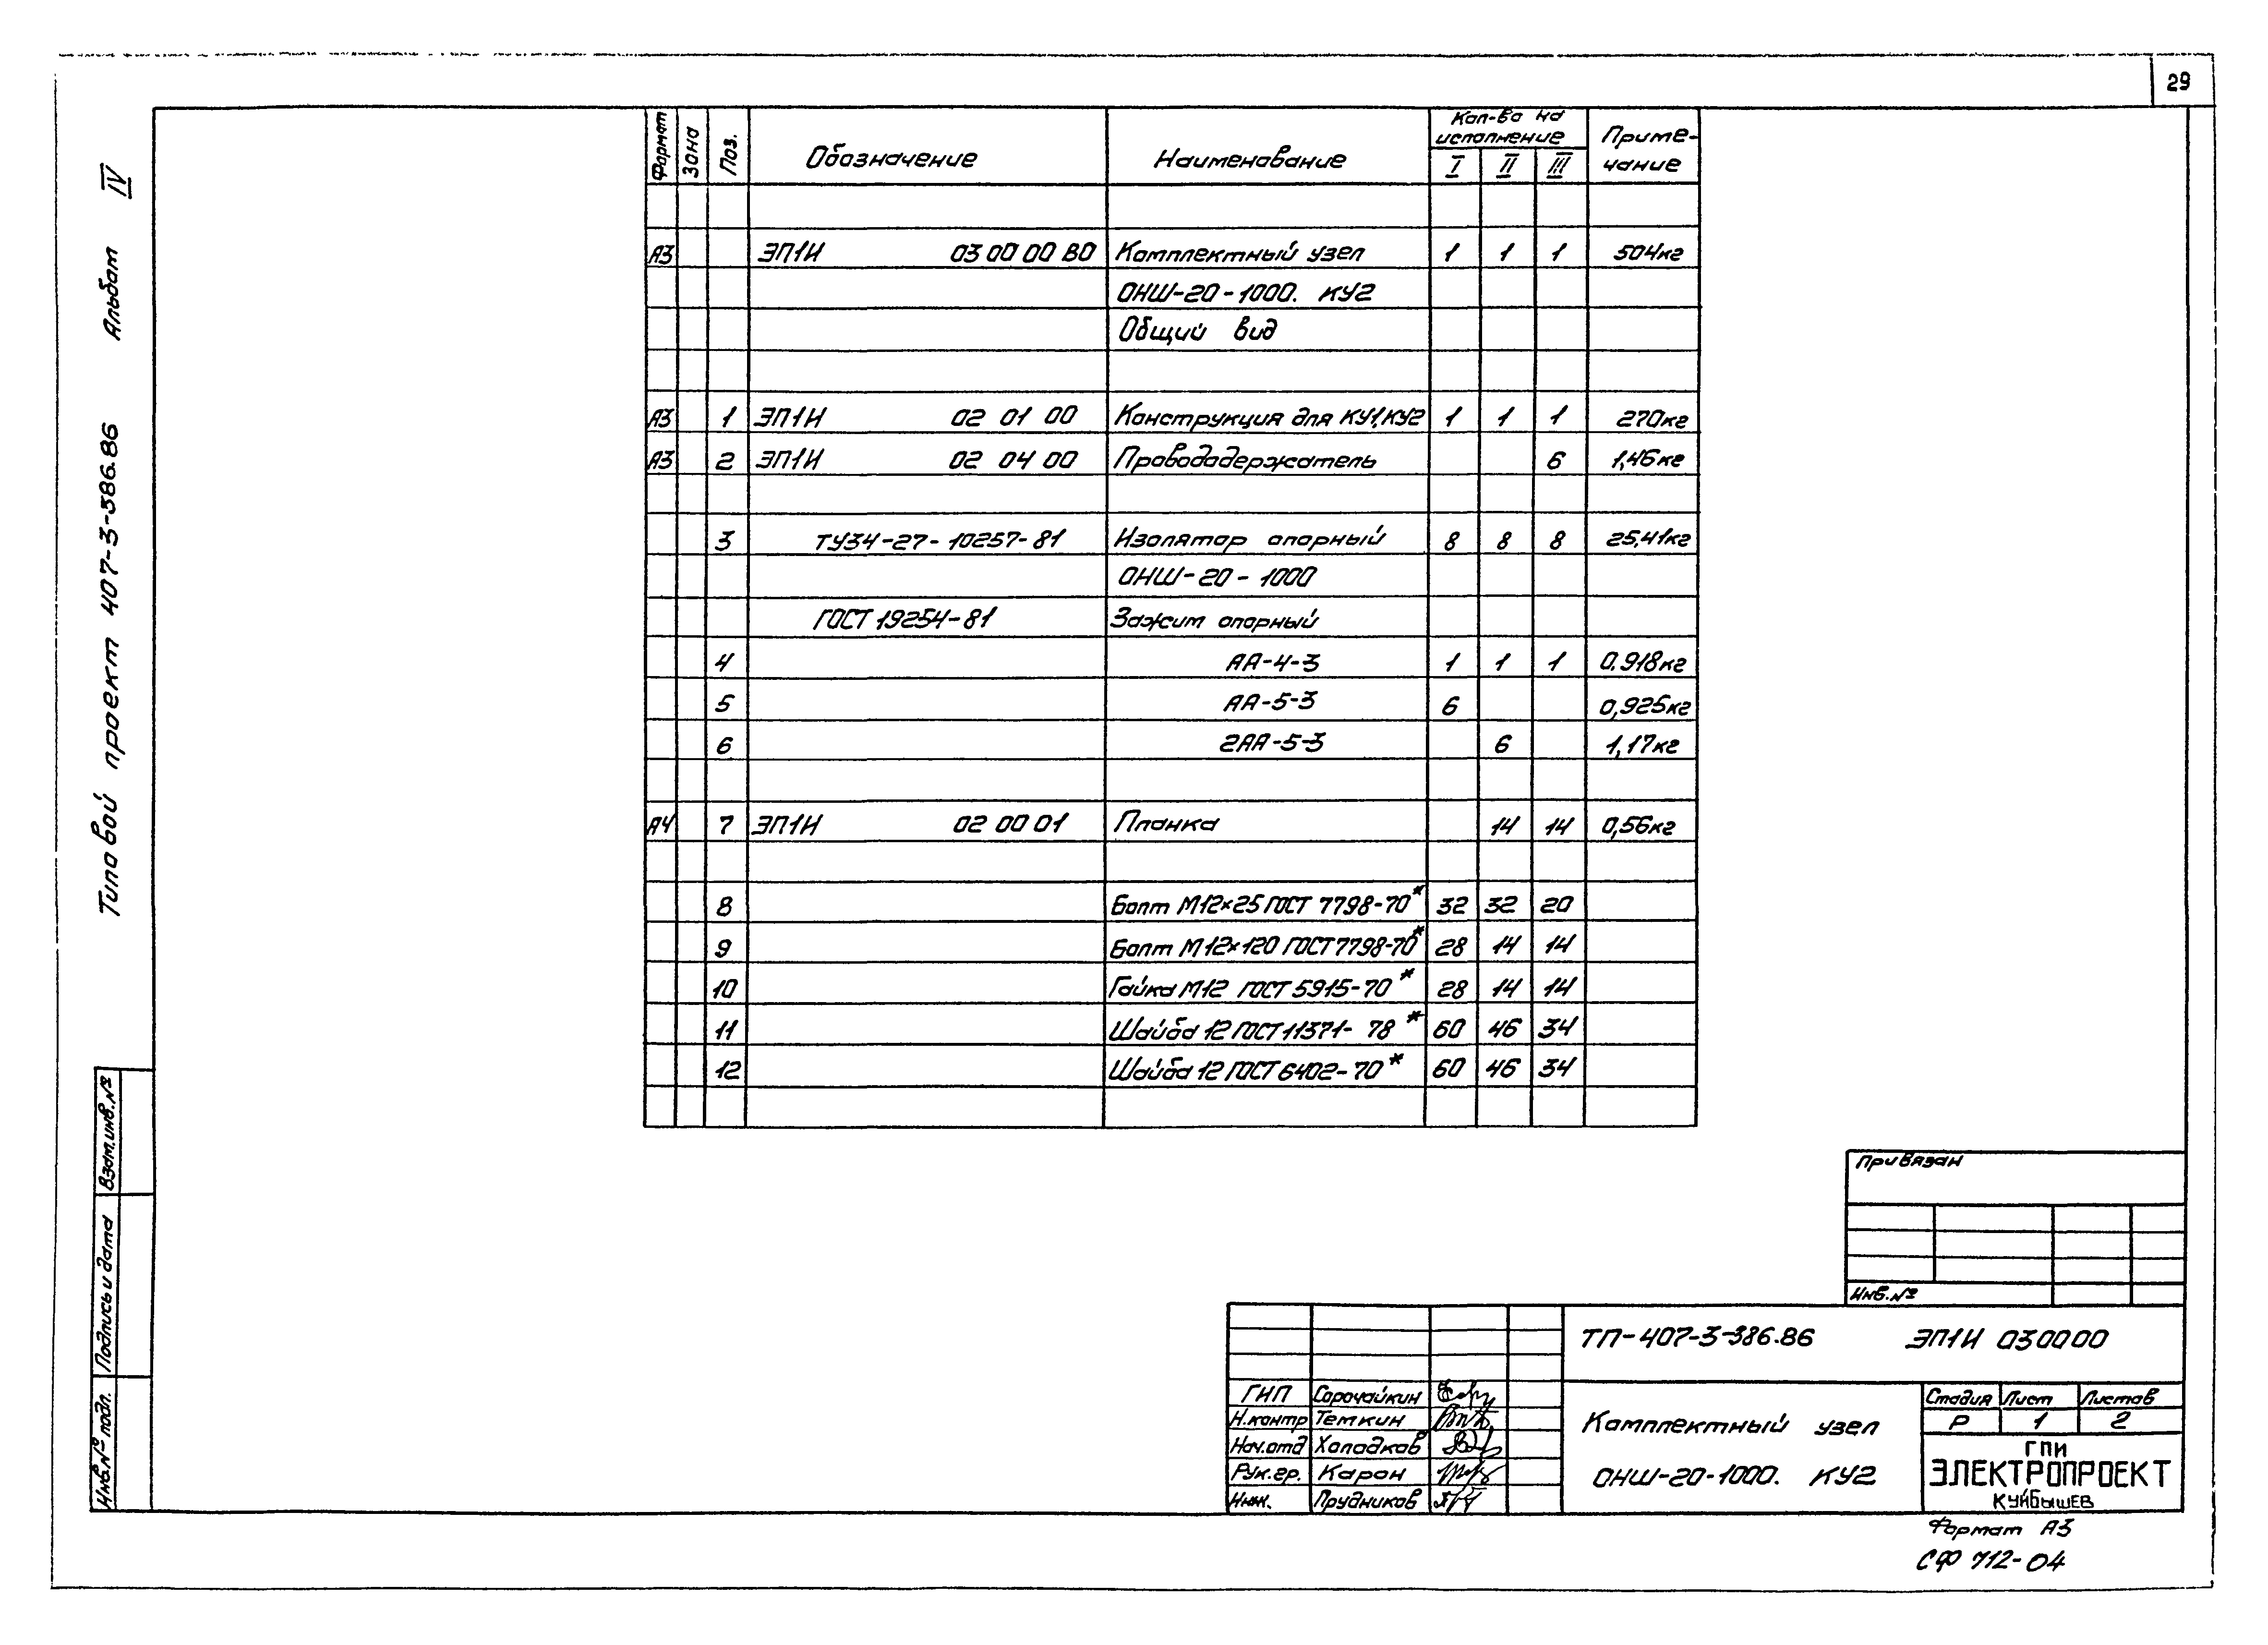 29
Типовой проект 407-3-386.86 Альбом IV
Формат Зона Поз. Обозначение Наименование Кол-во на исполнение I II III Примечание
А3 ЭП1И 03 00 00 ВО Комплектный узел 1 1 1 504кг
ОНШ-20-1000. КУ2
Общий вид
А3 1 ЭП1И 02 01 00 Конструкция для КУ1,КУ2 1 1 1 270кг
А3 2 ЭП1И 02 04 00 Прободадержатель 6 1,46кг
3 ТУ34-27-10257-81 Изолятор опорный 8 8 8 25,41кг
ОНШ-20-1000
ГОСТ 19254-81 Зажим опорный
4 АА-4-3 1 1 1 0.918кг
5 АА-5-3 6 0,925кг
6 2АА-5-3 6 1,17кг
А4 7 ЭП1И 02 00 01 Планка 14 14 0,56кг
8 Болт М12×25 ГОСТ 7798-70* 32 32 20
9 Болт М12×120 ГОСТ 7798-70* 28 14 14
10 Гайка М12 ГОСТ 5915-70* 28 14 14
11 Шайба 12 ГОСТ 11371-78* 60 46 34
12 Шайба 12 ГОСТ 6402-70* 60 46 34
Взам.инв.№
Подпись и дата
Инв.№ подл.
Привязан
Инв.№
ТП-407-3-386.86 ЭП1И 030000
ГИП Сорочайкин
Н.контр Темкин
Нач.отд Холодков
Рук.гр. Карон
Инж. Прудников
Комплектный узел
ОНШ-20-1000. КУ2
Стадия Лист Листов
Р 1 2
ГПИ
ЭЛЕКТРОПРОЕКТ
КУЙБЫШЕВ
Формат А3
СФ 712-04